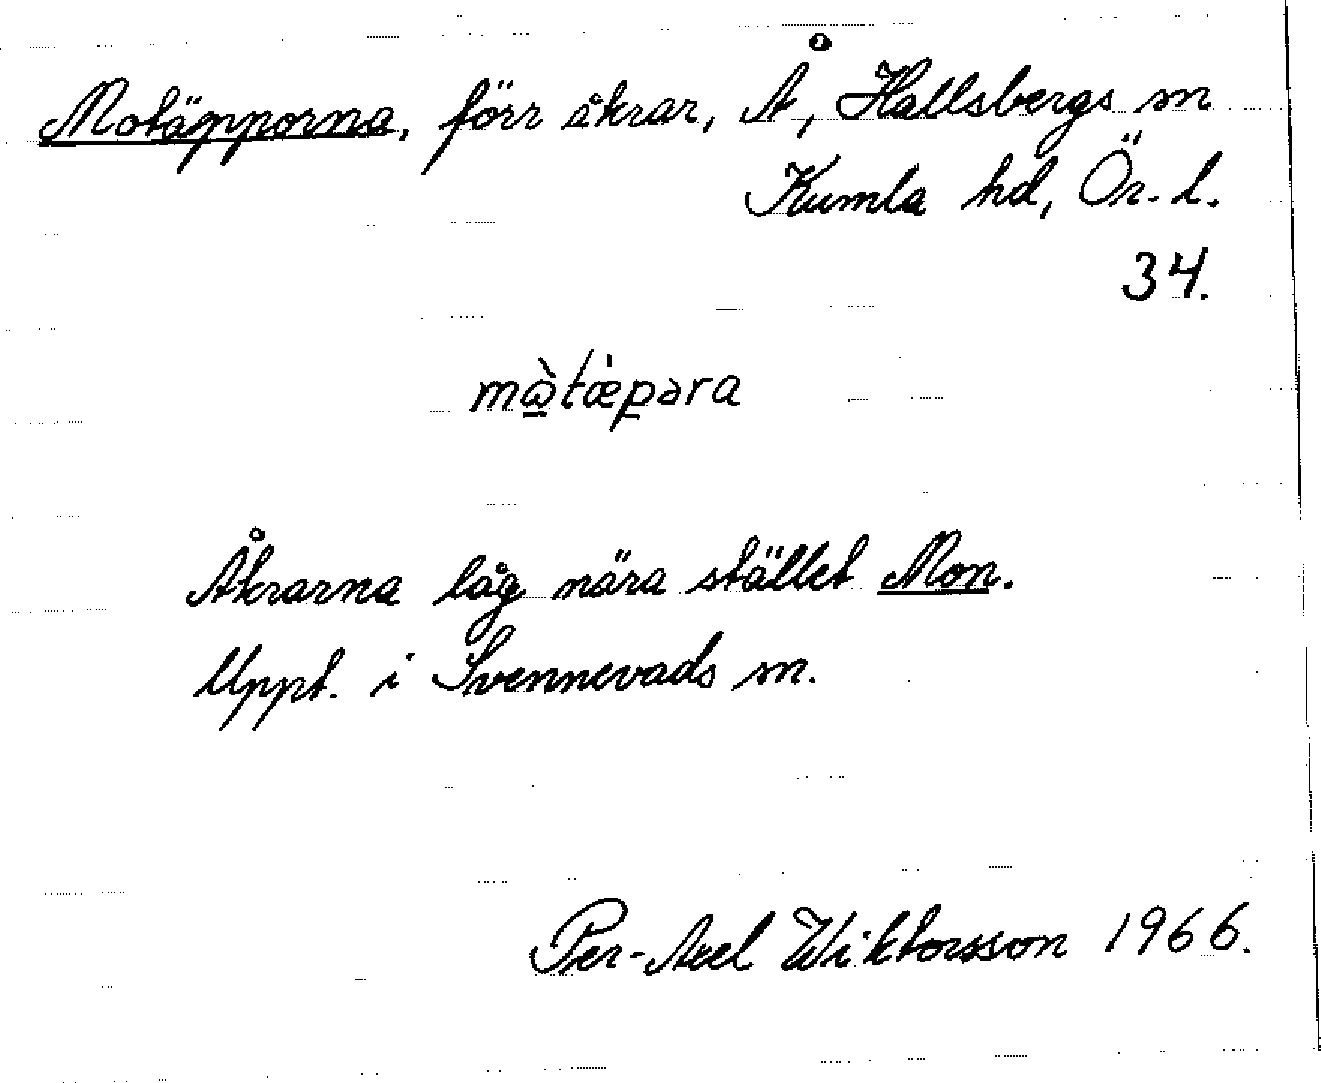 Motäpporna, förr åkrar, Å, Hallsbergs sn
Kumla hd, Ör. l.
34.
mὼ̲tæ̀pəra
Åkrarna låg nära stället Mon.
Uppt. i Svennevads sn.
Per-Axel Wiktorsson 1966.